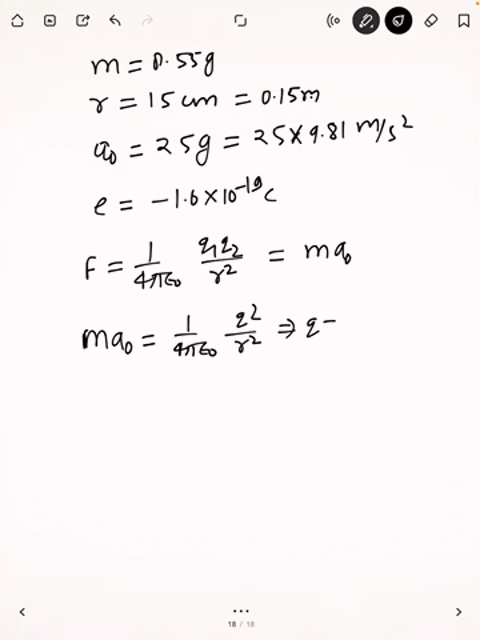 m = 0.55g
r = 15 cm = 0.15m
a₀ = 25g = 25×9.81 m/s²
e = -1.6×10⁻¹⁹C
F = 1/4πε₀ q₁q₂/r² = ma₀
ma₀ = 1/4πε₀ q²/r² ⇒ q-
18 / 18